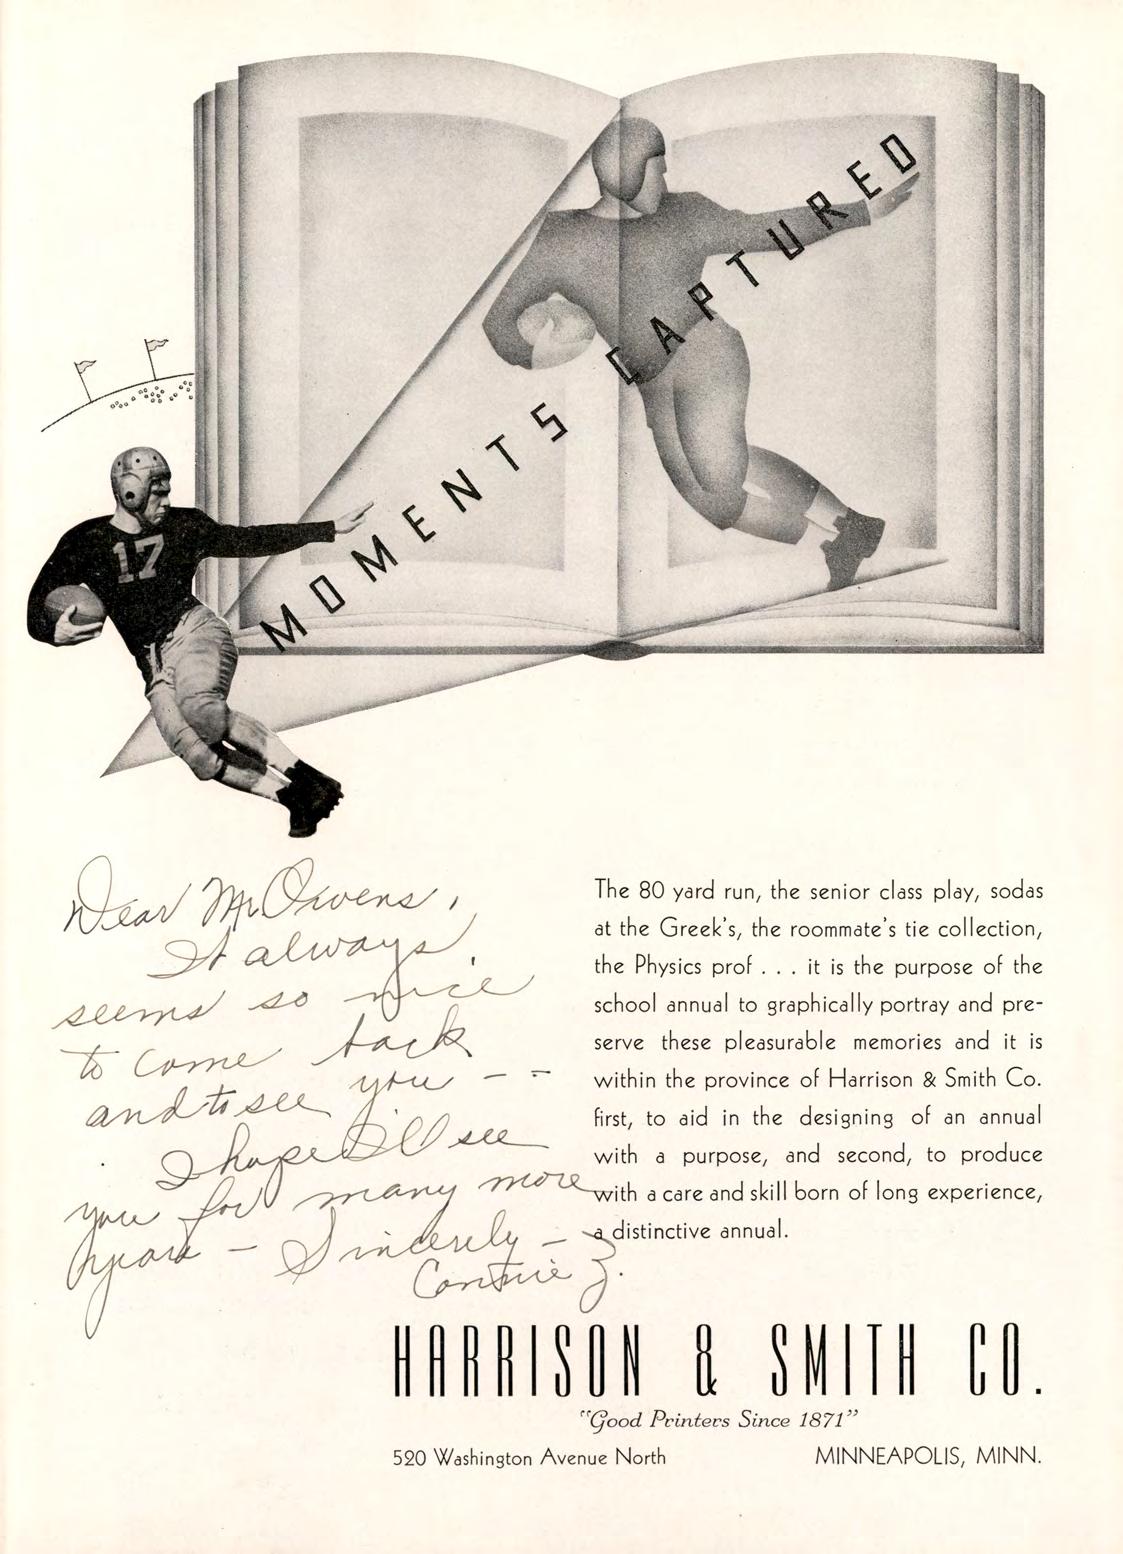 MOMENTS CAPTURED
17
Dear Mr Owens,
It always
seems so nice
to come back
and to see you - -
I hope I'll see
you for many more
years - Sincerely -
Connie Z.
The 80 yard run, the senior class play, sodas
at the Greek's, the roommate's tie collection,
the Physics prof . . . it is the purpose of the
school annual to graphically portray and pre-
serve these pleasurable memories and it is
within the province of Harrison & Smith Co.
first, to aid in the designing of an annual
with a purpose, and second, to produce
with a care and skill born of long experience,
a distinctive annual.
HARRISON & SMITH CO.
"Good Printers Since 1871"
520 Washington Avenue North
MINNEAPOLIS, MINN.